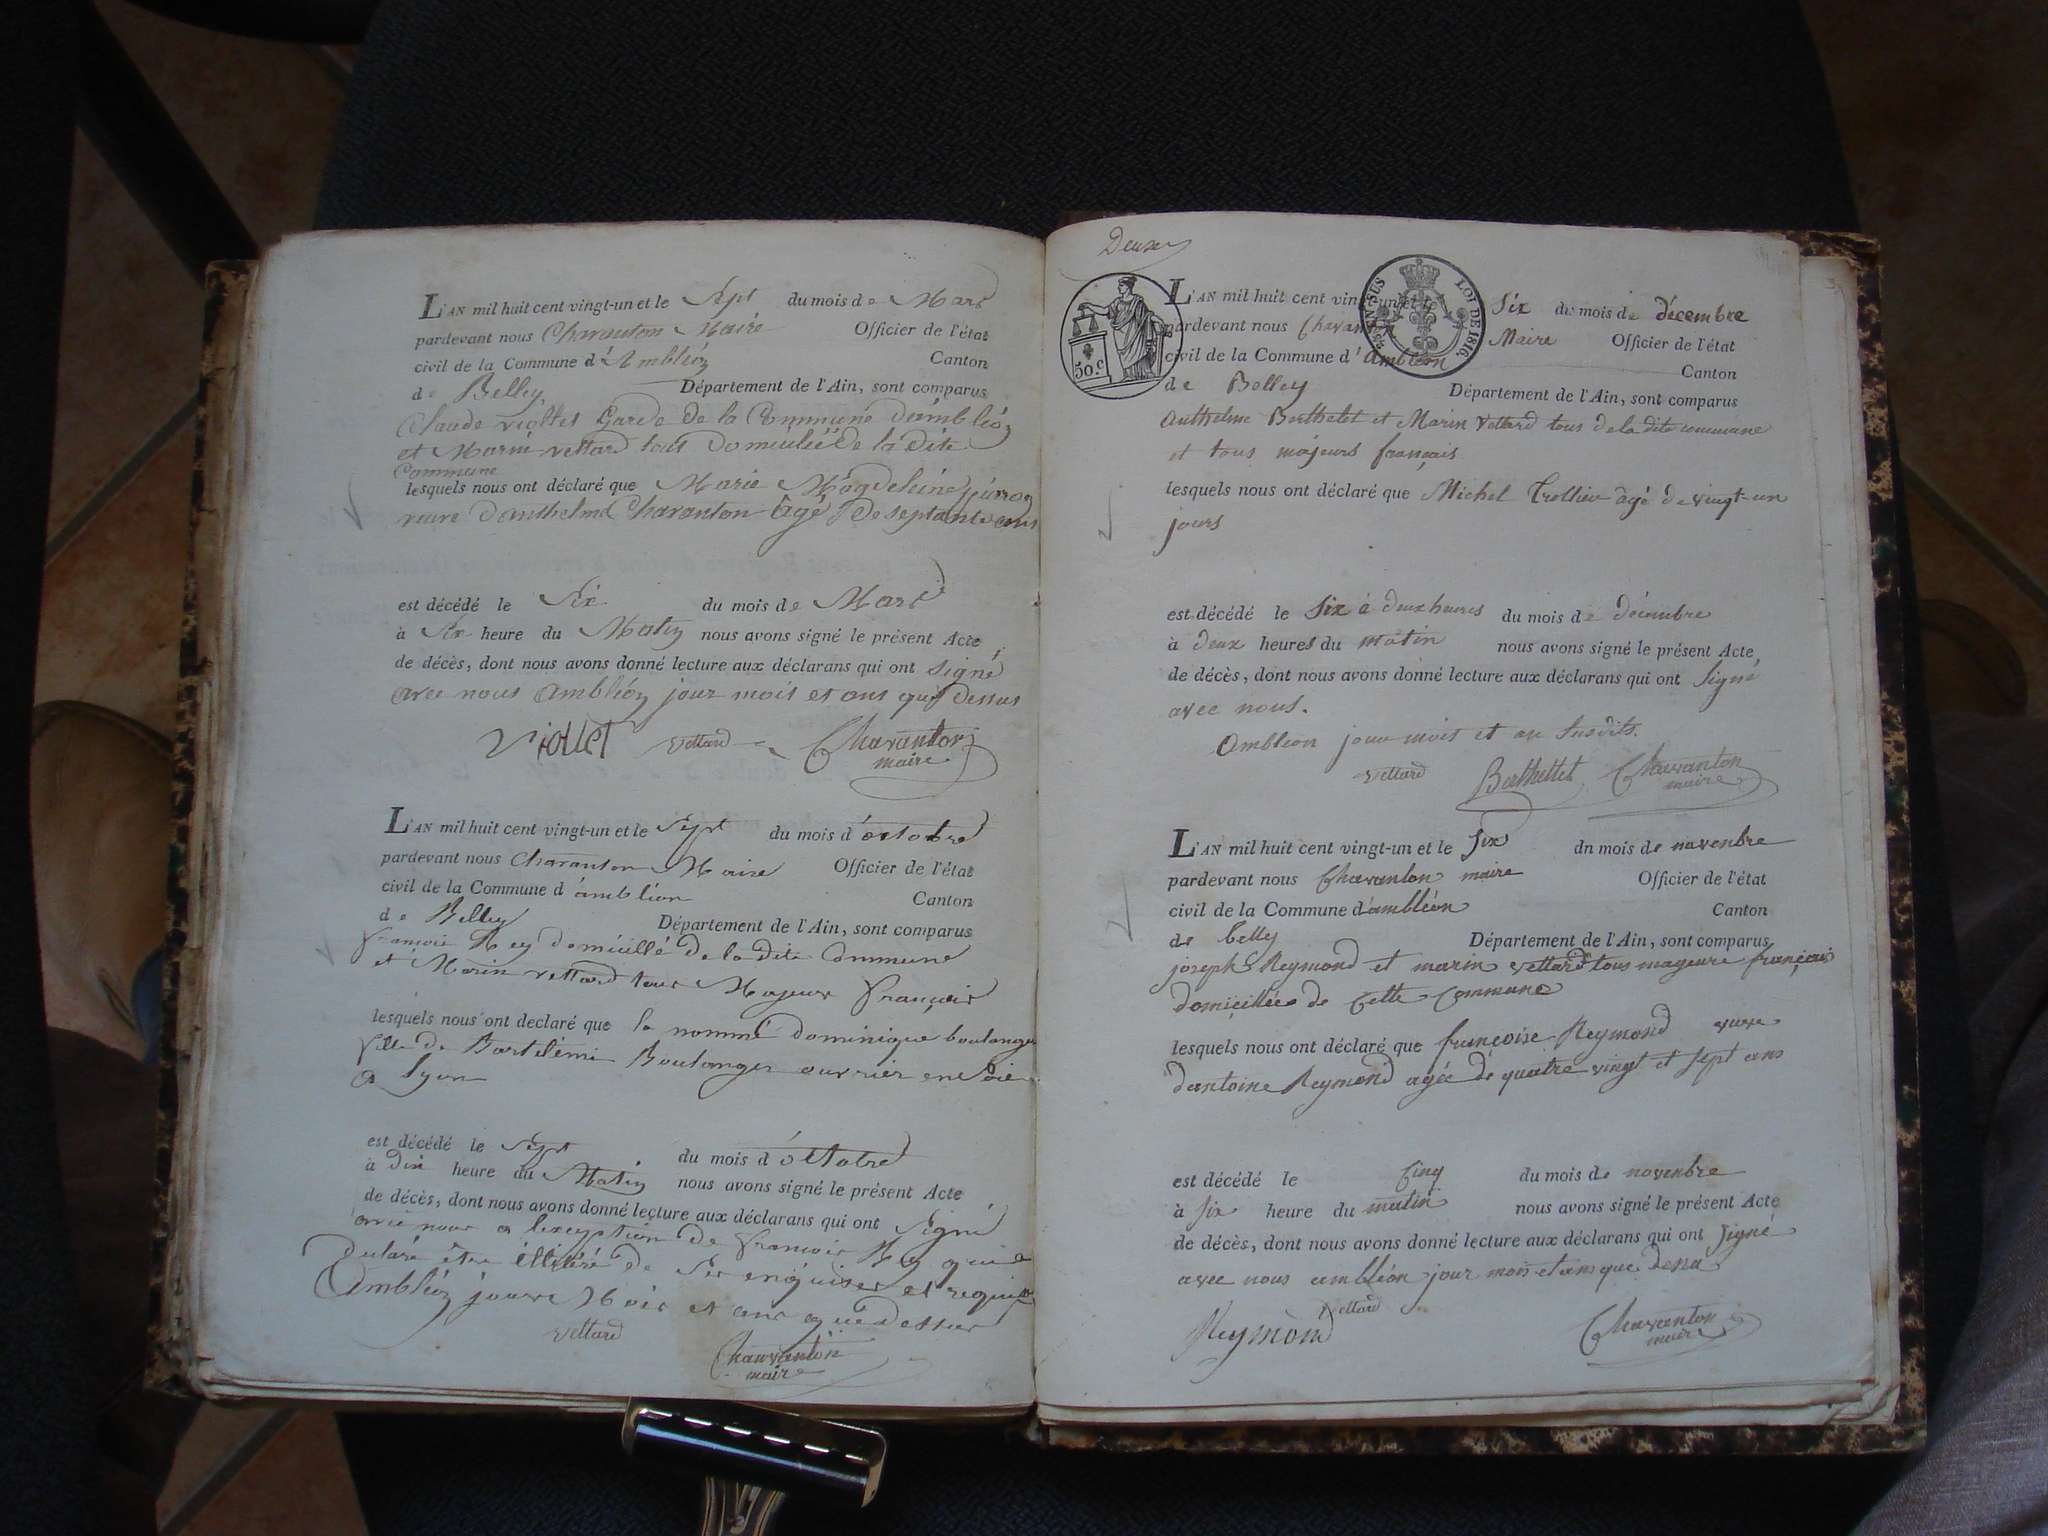 L'AN mil huit cent vingt-un et le Sept du mois de Mars
pardevant nous Charanton Maire Officier de l'état
civil de la Commune d'Ambléon Canton
de Belley, Département de l'Ain, sont comparus
Claude viottet Garde de la Commune d'ambléon
et Marin vettard tous domicilié de la dite
Commune
lesquels nous ont déclaré que Marie Magdeleine
veuve d'anthelme Charanton âgé de septante ans
est décédé le Six du mois de Mars
à Six heure du Matin nous avons signé le présent Acte
de décès, dont nous avons donné lecture aux déclarans qui ont signé
avec nous Ambléon jour mois et ans que dessus
Viollet Vettard Charanton
maire
L'AN mil huit cent vingt-un et le Sept du mois d'octobre
pardevant nous Charanton Maire Officier de l'état
civil de la Commune d'ambléon Canton
de Belley Département de l'Ain, sont comparus
françois Rey domicillé de la dite Commune
et Marin vettard tous Majeur françois
lesquels nous ont declaré que la nommé dominique boulanger
fille de Bartelémi Boulanger ouvrier en soie
a lyon
est décédé le Sept du mois d'octobre
à dix heure du Matin nous avons signé le présent Acte
de décès, dont nous avons donné lecture aux déclarans qui ont Signé
avec nous a lexception de françois Rey qui a
déclaré être illitéré de ses enquiser et requis
Ambléon jour Mois et ans que dessus
Vettard
Charvanton
maire
Deux
L'AN mil huit cent vingt-un et le Six du mois de décembre
pardevant nous Charvanton Maire Officier de l'état
civil de la Commune d'Ambléon Canton
de Belley Département de l'Ain, sont comparus
50.c
LOI DE 1816.
Anthelme Berthelet et Marin Vettard tous de la dite commune
et tous majeurs français
lesquels nous ont déclaré que Michel Trollieu âgé de vingt-un
jours
est décédé le Six à deux heures du mois de décembre
à deux heures du matin nous avons signé le présent Acte
de décès, dont nous avons donné lecture aux déclarans qui ont signé
avec nous.
Ambleon jour mois et an susdits.
Vettard Berthellet Charvanton
maire
L'AN mil huit cent vingt-un et le Six dn mois de novenbre
pardevant nous Charvanton maire Officier de l'état
civil de la Commune d'ambléon Canton
de belly Département de l'Ain, sont comparus
joseph Reymond et marin vettard tous mageure françois
domicillés de Cette Commune
lesquels nous ont déclaré que françoise Reymond veuve
dantoine Reymond agée de quatre vingt et sept ans
est décédé le Cinq du mois de novenbre
à six heure du matin nous avons signé le présent Acte
de décès, dont nous avons donné lecture aux déclarans qui ont signé
avec nous ambléon jour mois et ans que
Reymond Vettard Charvanton
maire